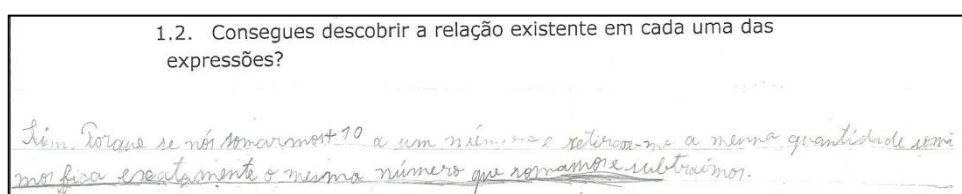 1.2. Consegues descobrir a relação existente em cada uma das
expressões?
Sim. Porque se nós somarmos +10 a um número e a mesma quantidade
mos fica exatamente o mesmo número que e subtraimos.